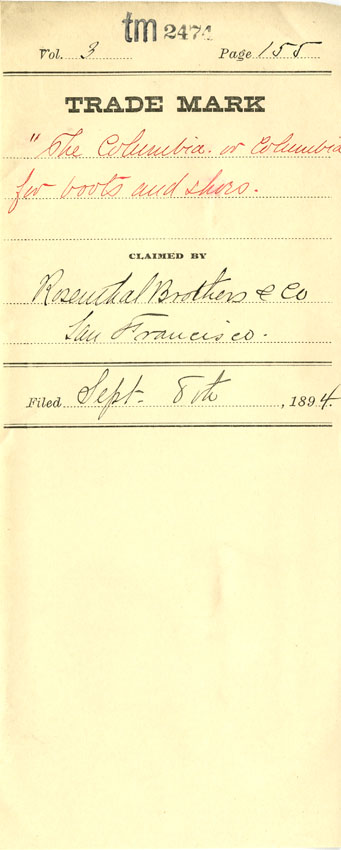 tm 2474
Vol. 3 Page 155
TRADE MARK
"The Columbia. or Columbia
for boots and shoes.
CLAIMED BY
Rosenthal Brothers & Co
San Francisco.
Filed Sept. 8th, 1894.